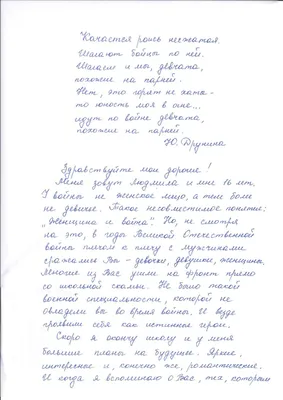 Качается рожь несжатая.
Шагают бойцы по ней.
Шагаем и мы, девчата,
похожие на парней.
Нет, это горят не хаты-
то юность моя в огне...
идут по войне девчата,
похожие на парней.
Ю. Друнина
Здравствуйте мои дорогие!
Меня зовут Людмила и мне 16 лет.
У войны не женское лицо, а тем более
не девичье. Такое несовместимое понятие:
"женщина и война". Но, не смотря
на это, в годы Великой Отечественной
войны плечом к плечу с мужчинами
сражались Вы - девочки, девушки, женщины,
многие из Вас ушли на фронт прямо
со школьной скамьи. Не было такой
военной специальности, которой не
овладели вы во время войны. И везде
проявили себя как истинные герои.
Скоро я окончу школу и у меня
большие планы на будущее. Яркие,
интересные и, конечно же, романтические.
И когда я вспоминаю о Вас, тех, которым